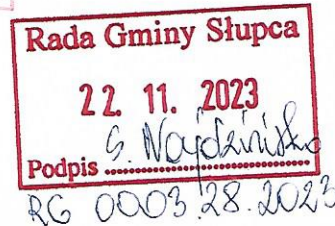 Rada Gminy Słupca
22. 11. 2023
Podpis S.
RG 0003.28.2023